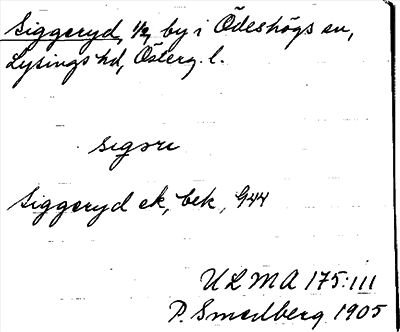 Siggeryd, 1/2, by i Ödeshögs sn,
Lysings hd, Österg. l.
sigəru
Siggeryd ek, bek, G44
ULMA 175:III
P. Smedberg 1905